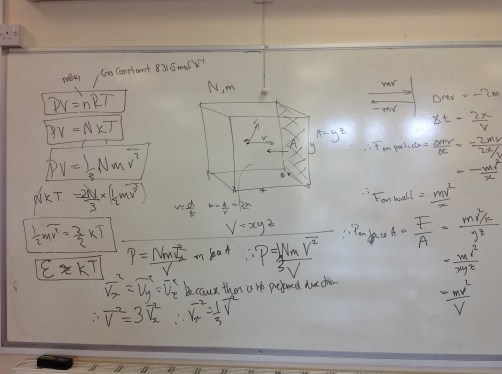 moles
Gas Constant 8.31 J mol⁻¹K⁻¹
PV = nRT
PV = NkT
PV = 1/3 Nm v̅²
NkT = 2N/3 × (½mv̅²)
½mv̅² = 3/2 kT
E ≈ kT
N, m
A
A = yz
y
x
v = d/t
t = d/v = 2x
V = xyz
P = Nmv̅ₓ²/V on face A ∴ P = 1/3 Nm v̅²/V
v̅ₓ² = v̅ᵧ² = v̅_z² because there is no preferred direction
∴ v̅² = 3v̅ₓ² ∴ v̅ₓ² = 1/3 v̅²
mv
-mv
Δmv = -2mv
Δt = 2x/v
∴ F on particle = Δmv/Δt = -2mv/(2x/v)
= -mv²/x
∴ F on wall = mv²/x
∴ P on face A = F/A = (mv²/x)/yz
= mv²/xyz
= mv²/V